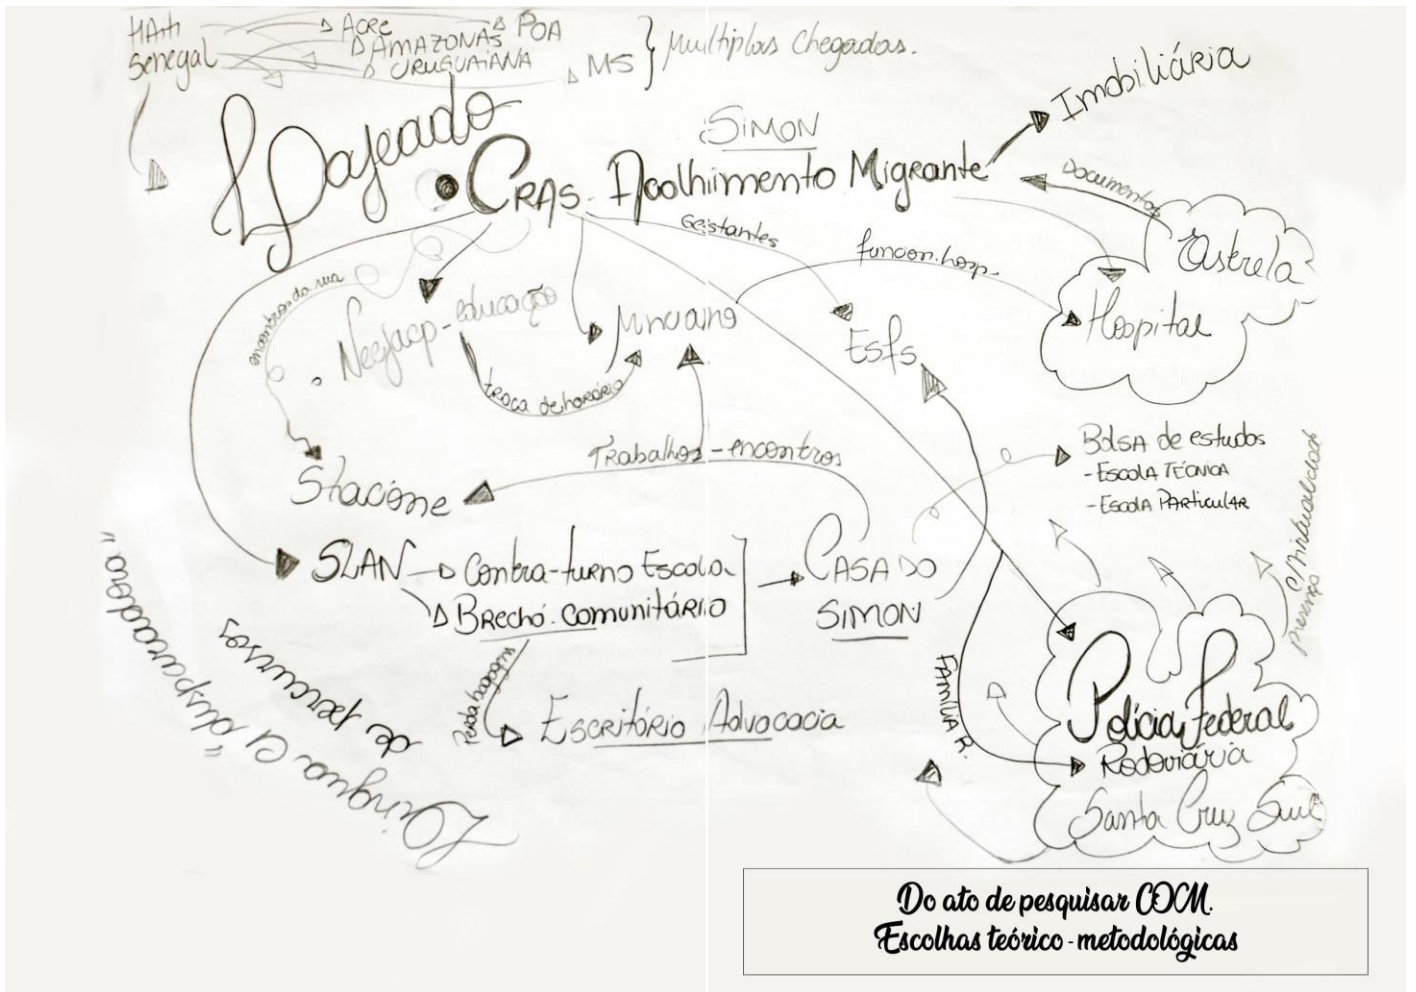 Haiti
Senegal
Acre
Amazonas
Uruguaiana
POA
MS
Multiplas chegadas.
Lajeado
SIMON
CRAS - Acolhimento Migrante
Imobiliária
Documentos
Estrela
Hospital
Gestantes
funcion. hosp.
encontros da rua
Neejacp - educação
troca de horário
Minuano
Esfs
Trabalhos - encontros
Stacione
Bolsa de estudos
- Escola Técnica
- Escola Particular
SLAN
Contra-turno Escola
Brechó Comunitário
CASA DO
SIMON
Perda bagagens
Escritório Advocacia
FAMÍLIA R.
Polícia Federal
Rodoviária
Santa Cruz Sul
presença
Língua a "disparadora"
de percursos
Do ato de pesquisar COM.
Escolhas teórico-metodológicas